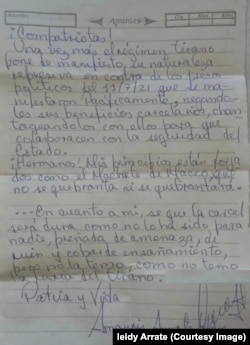 Apuntes
¡Compatriotas!
Una vez más el régimen tirano
pone de manifiesto, su naturaleza
represiva en contra de los presos
políticos del 11/7/21 que se ma-
nifestaron Pacíficamente, negando-
les sus beneficios carcelarios, chan
tageandolos con ellos para que
colaboracen con la seguridad de
Estado.
¡Hermano! Mis principios están forja
dos como el Machete de Maceo, que
no se quebranta ni se quebrantara.
...En cuanto a mi, se que la carcel
será dura como no lo ha sido para
nadie, preñada de amenaza, de
ruin y cobarde ensañamiento,
pero no la temo, como no temo
la furia del tirano.
Patria y Vida
leidy Arrate (Courtesy Image)